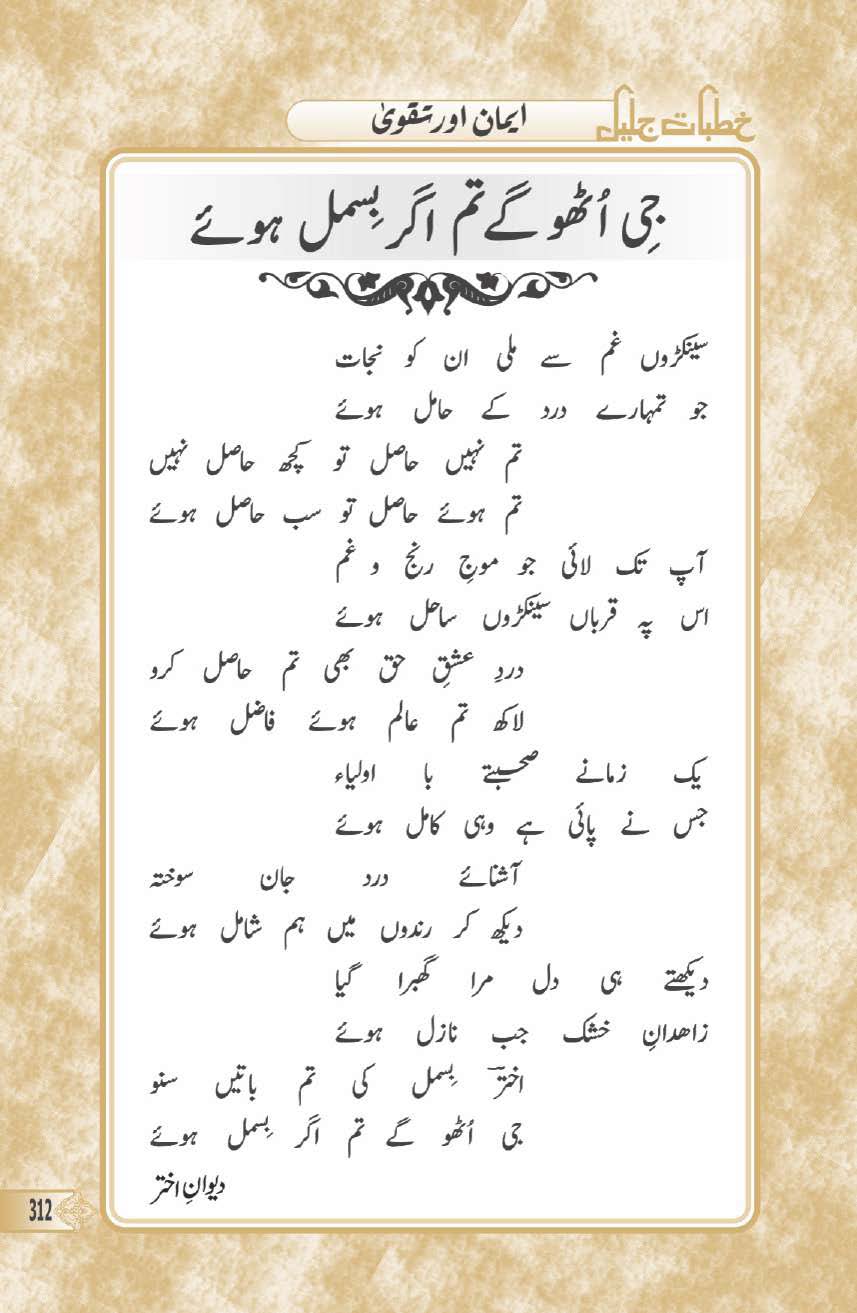 خطبات جلیل
ایمان اور تقویٰ
جِی اُٹھو گے تم اگر بِسمل ہوئے
سینکڑوں غم سے ملی ان کو نجات
جو تمہارے درد کے حامل ہوئے
تم نہیں حاصل تو کچھ حاصل نہیں
تم ہوئے حاصل تو سب حاصل ہوئے
آپ تک لائی جو موجِ رنج و غم
اس پہ قرباں سینکڑوں ساحل ہوئے
دردِ عشقِ حق بھی تم حاصل کرو
لاکھ تم عالم ہوئے فاضل ہوئے
یک زمانے صحبتے با اولیاء
جس نے پائی ہے وہی کامل ہوئے
آشنائے درد جان سوختہ
دیکھ کر رندوں میں ہم شامل ہوئے
دیکھتے ہی دل مرا گھبرا گیا
زاھدانِ خشک جب نازل ہوئے
اخترؔ بِسمل کی تم باتیں سنو
جی اُٹھو گے تم اگر بِسمل ہوئے
دیوانِ اختر
312